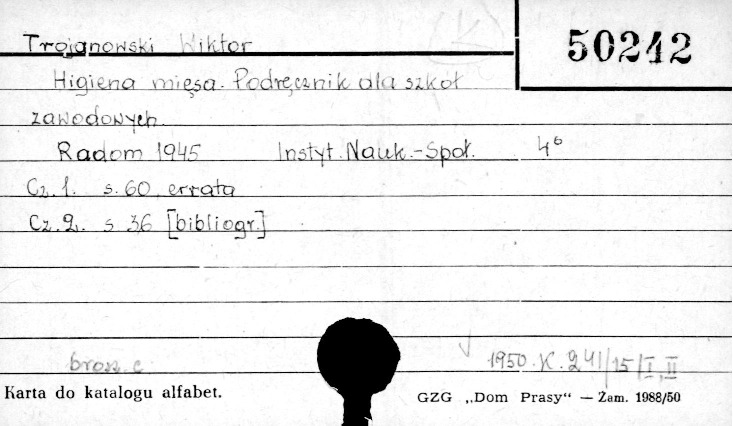 Trojanowski Wiktor
50242
Higiena mięsa. Podręcznik dla szkół
zawodowych.
Radom 1945 Instyt. Nauk.-Społ. 4°
Cz. 1. s. 60, errata
Cz. 2. s 36 [bibliogr.]
brosz. c.
1950.K.241/15/I, II
Karta do katalogu alfabet.
GZG „Dom Prasy“ — Zam. 1988/50